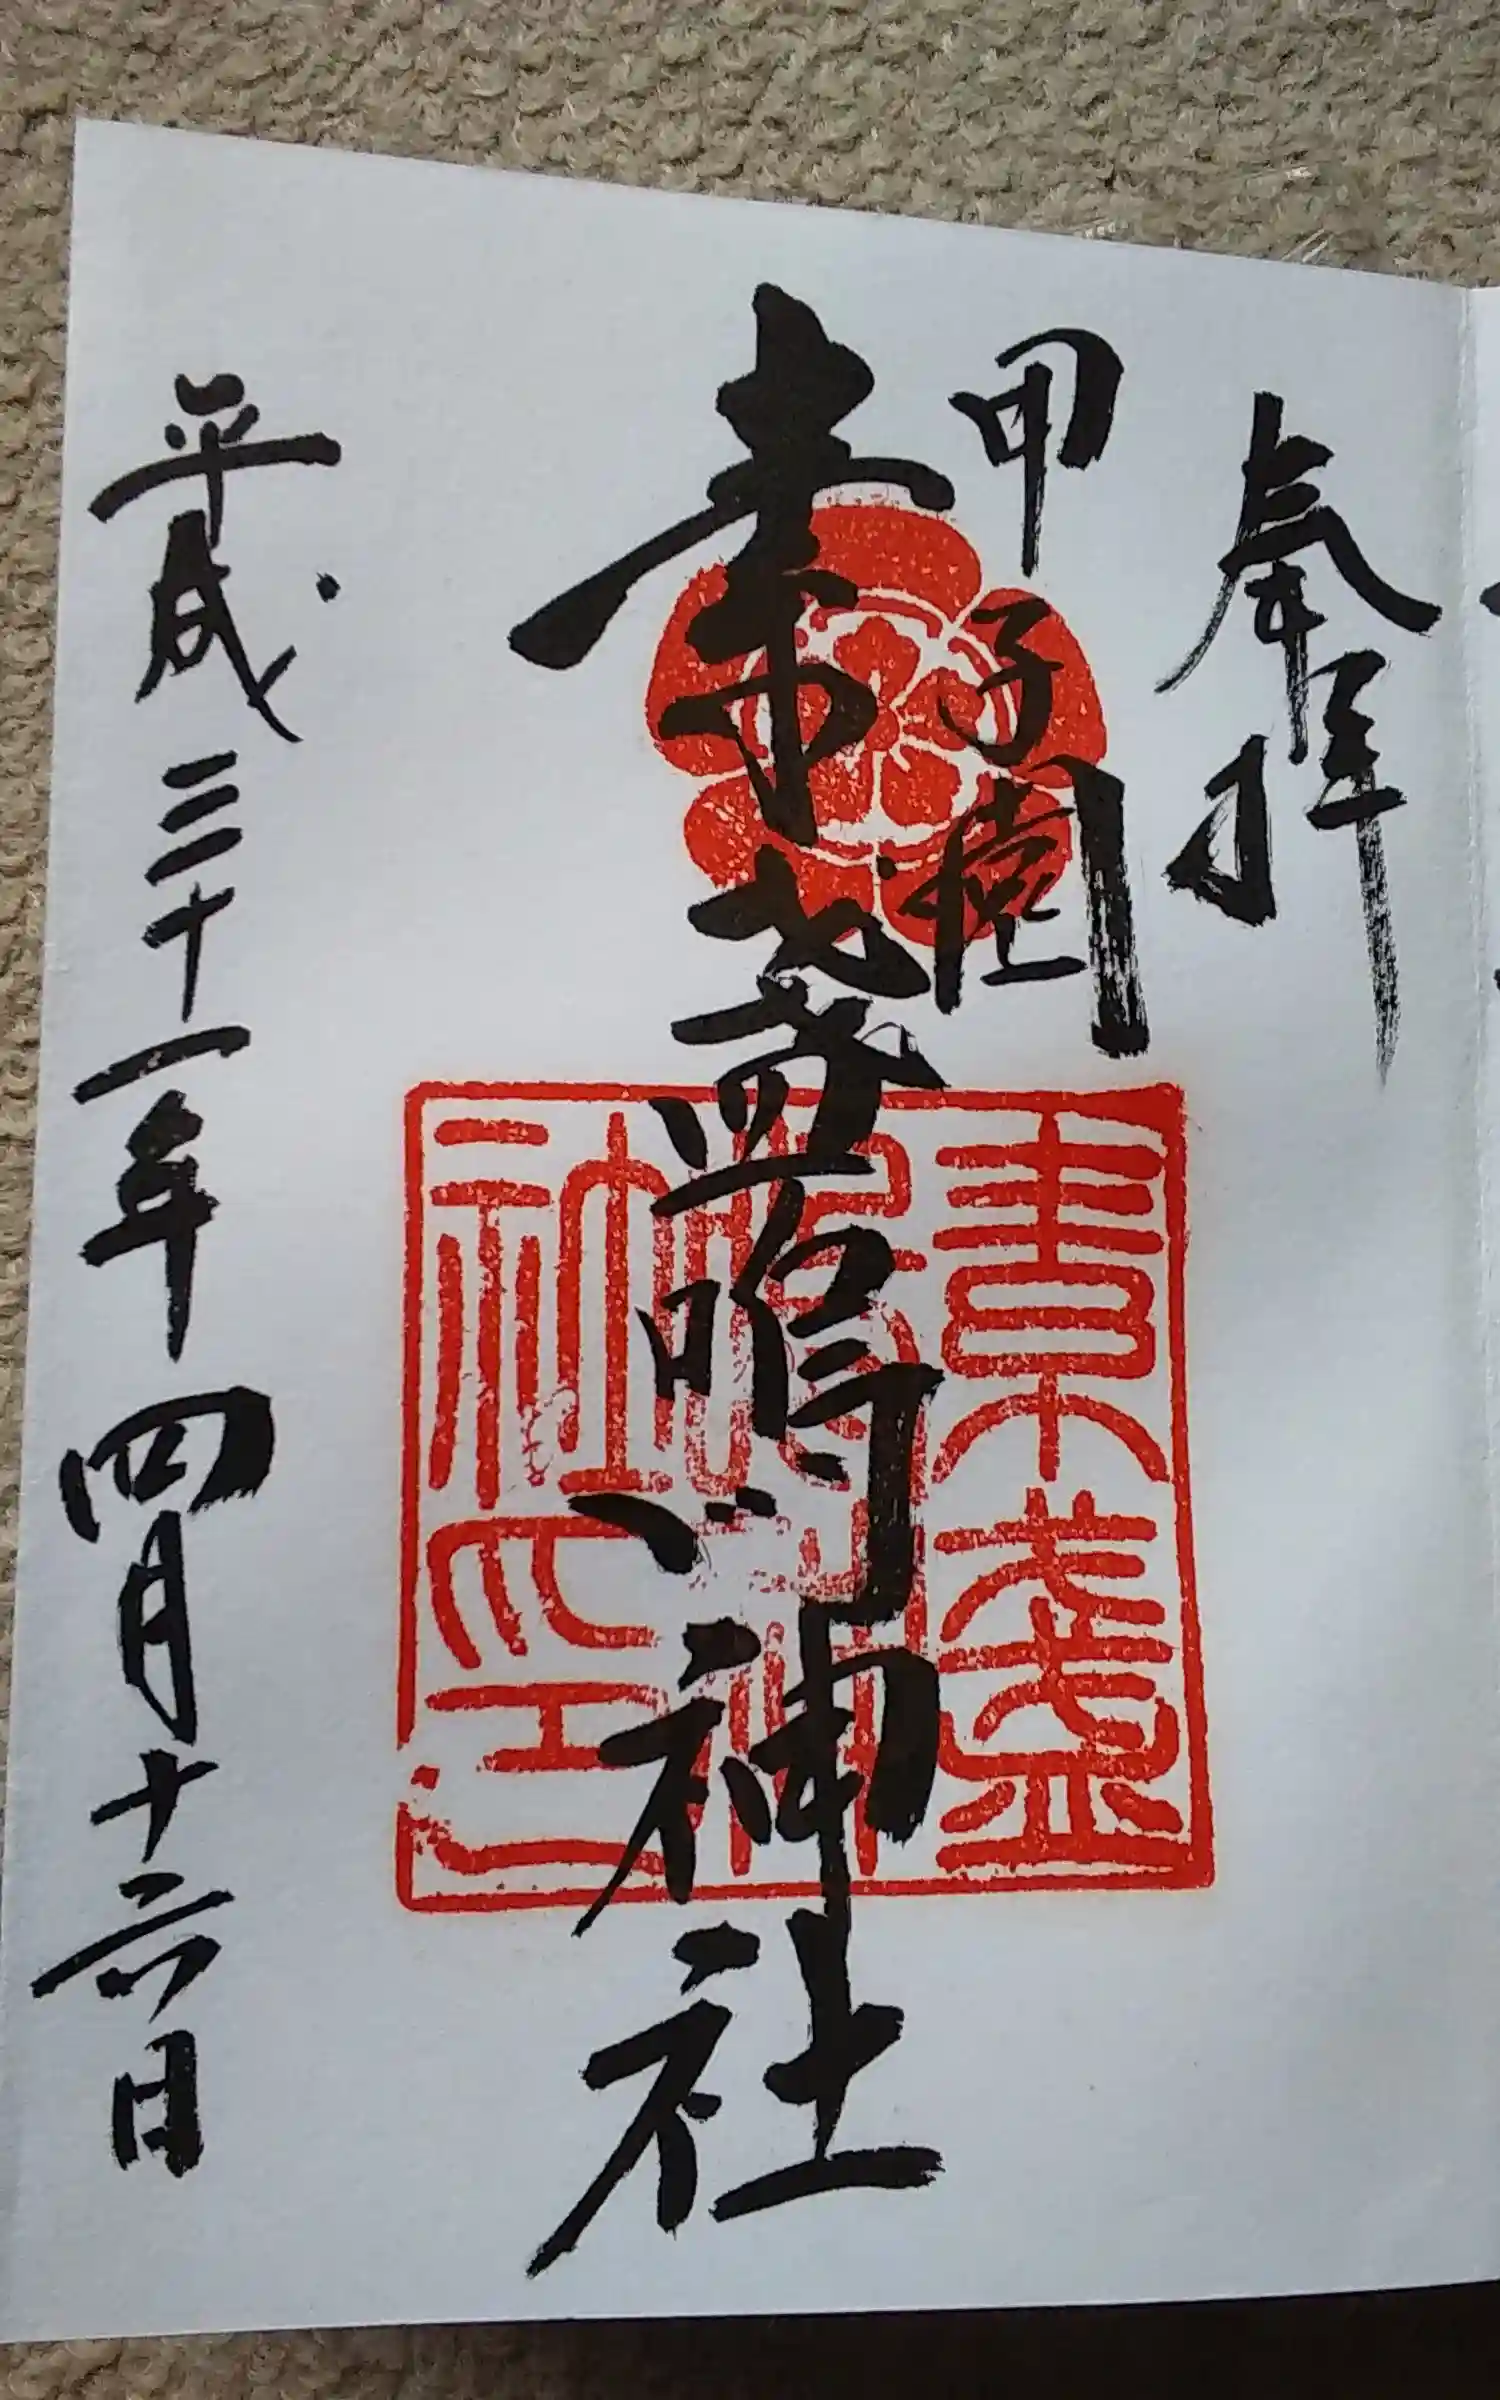 奉拝
甲子園
素盞嗚神社
平成三十一年四月十六日
素盞
嗚神
社印